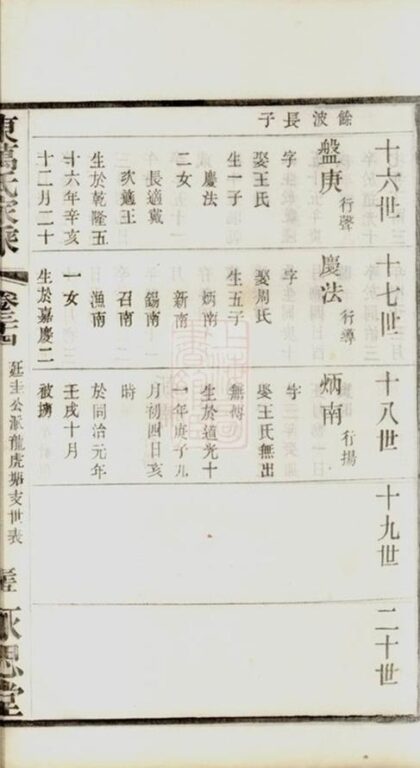 十六世
十七世
十八世
十九世
二十世
餘波長子
盤庚 行聲
字
娶王氏
生一子
慶法
二女
長適戴
次適王
生於乾隆五
十六年辛亥
十二月二十
慶法 行導
字
娶周氏
生五子
炳南
新南
錫南
召南
漁南
一女
生於嘉慶二
炳南 行揚
字
娶王氏無出
無傳
生於道光十
年庚子九
月初四日亥
時
於同治元年
壬戌十月
被擄
公派龍虎塘支世表
永思堂